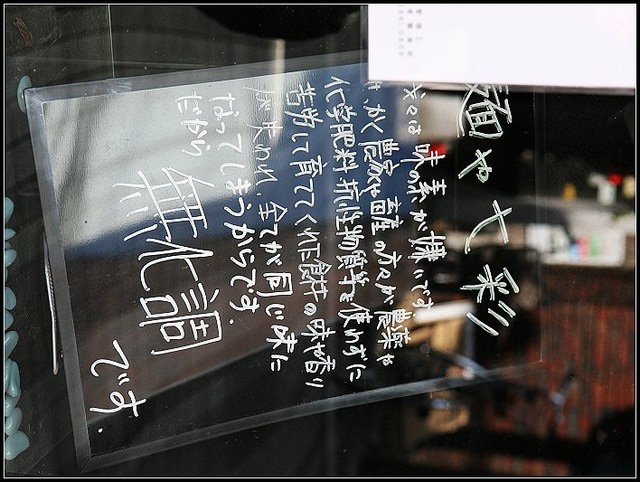 麺や七彩
我々は味の素が嫌いです
かく農家や畜産の方々が農薬や
化学肥料抗性物質等を使わずに
苦労して育ててくれた食材の味や香り
が失われ全てが同じ味に
なってしまうからです.
だから
無化調
です.